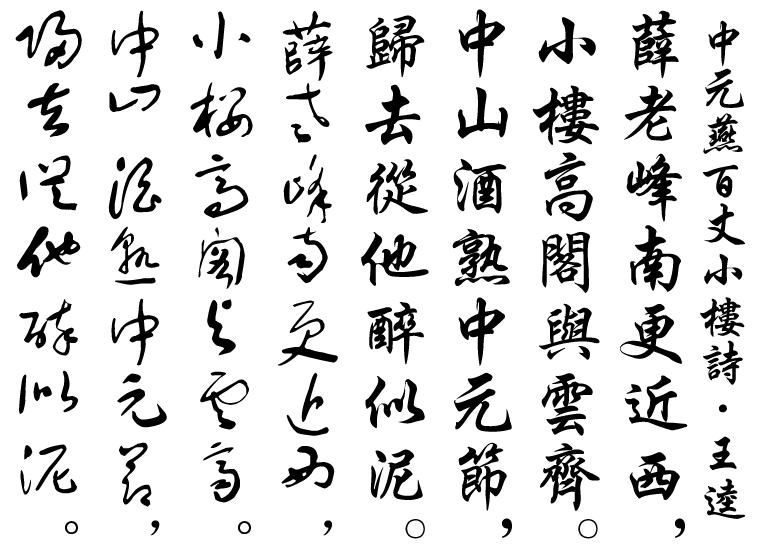 中元燕百丈小樓詩·王逵
薛老峰南更近西，
小樓高閣與雲齊。
中山酒熟中元節，
歸去從他醉似泥。
薛老峰南更近西，
小樓高閣與雲齊。
中山酒熟中元節，
歸去從他醉似泥。